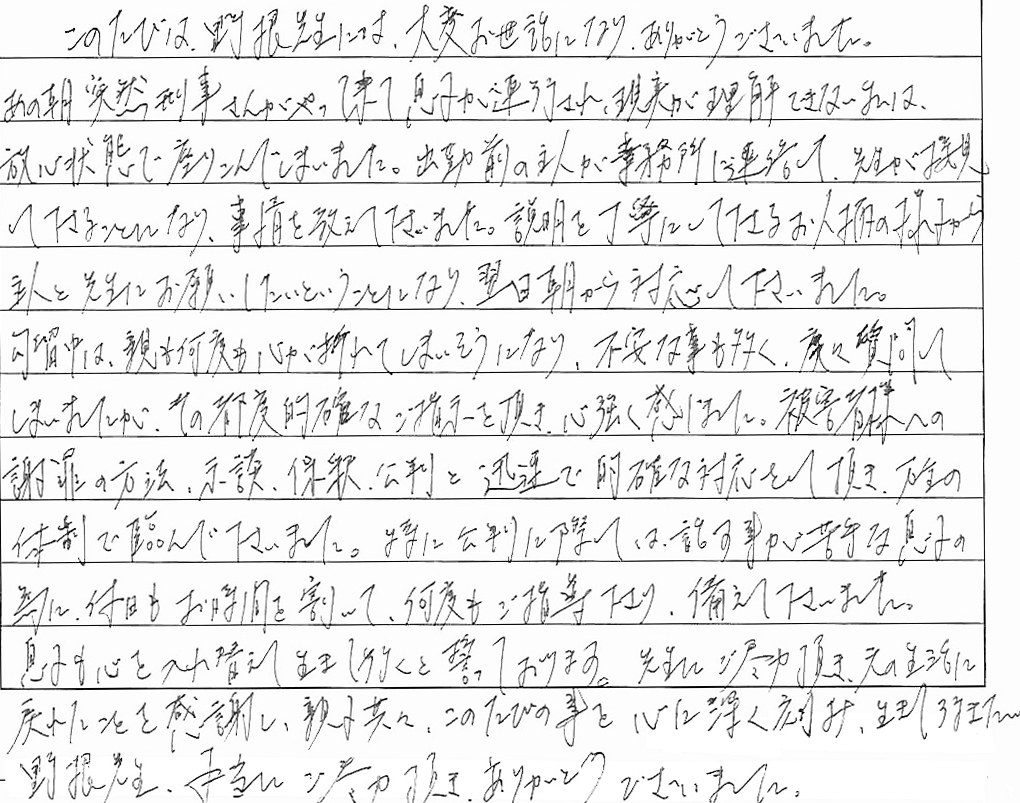 このたびは、野根先生には、大変お世話になり、ありがとうございました。
あの朝突然刑事さんがやって来て息子が連行され、現実が理解できないまま、
放心状態で座りこんでしまいました。出勤前の主人が事務所に連絡して、先生が接見
して下さることになり、事情を教えて下さいました。説明を丁寧にして下さるお人柄の様子から
主人と先生にお願いしたいということになり、翌日朝から対応して下さいました。
勾留中は、親も何度も心が折れてしまいそうになり、不安な事も多く、度々質問して
しまいましたが、その都度的確なご指示を頂き、心強く感じました。被害者様への
謝罪の方法、示談、保釈、公判と迅速で的確な対応をして頂き、万全の
体制で臨んで下さいました。特に公判に際しては、話す事が苦手な息子の
為に、休日もお時間を割いて、何度もご指導下さり、備えて下さいました。
息子も心を入れ替えて生きて行くと誓っております。先生にご尽力頂き、元の生活に
戻れたことを感謝し、親子共々、このたびの事を心に深く刻み、生きて行きたい
野根先生、本当にご尽力頂き、ありがとうございました。